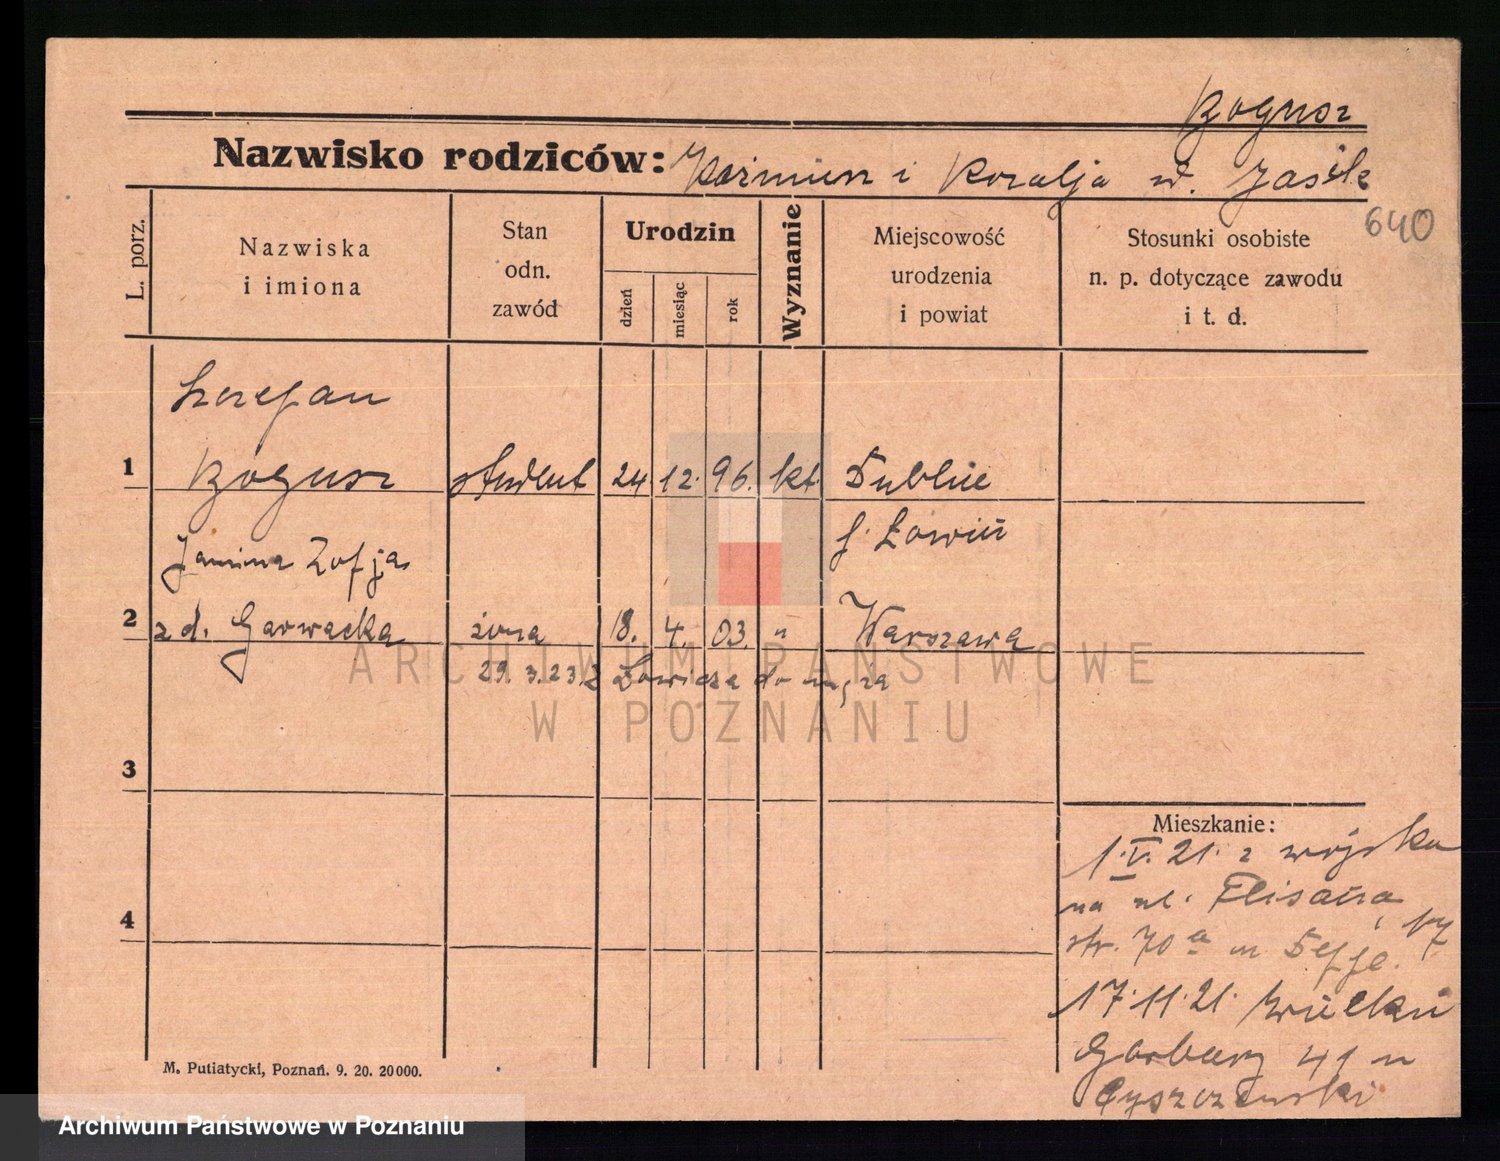 Bogusz
Nazwisko rodziców: Kaźmierz i Rozalja z d. Jasik
640
L. porz.
Nazwiska
i imiona
Stan
odn.
zawód
Urodzin
dzień
miesiąc
rok
Wyznanie
Miejscowość
urodzenia
i powiat
Stosunki osobiste
n. p. dotyczące zawodu
i t. d.
Szczepan
1 Bogusz student 24 12. 96. kt.
p. Łowicz
Janina Zofja
2 z d. Garwacka żona 18. 4. 03. " Warszawa
29. 3. 23. z Łowicza do męża
ARCHIWUM PAŃSTWOWE
W POZNANIU
3
4
Mieszkanie:
1. V. 21. z wojska
na ul.
str. 70 a m 17
17. 11. 21. Wielkie
Garbary 41 u
Cyszczewski
M. Putiatycki, Poznań. 9. 20. 20000.
Archiwum Państwowe w Poznaniu